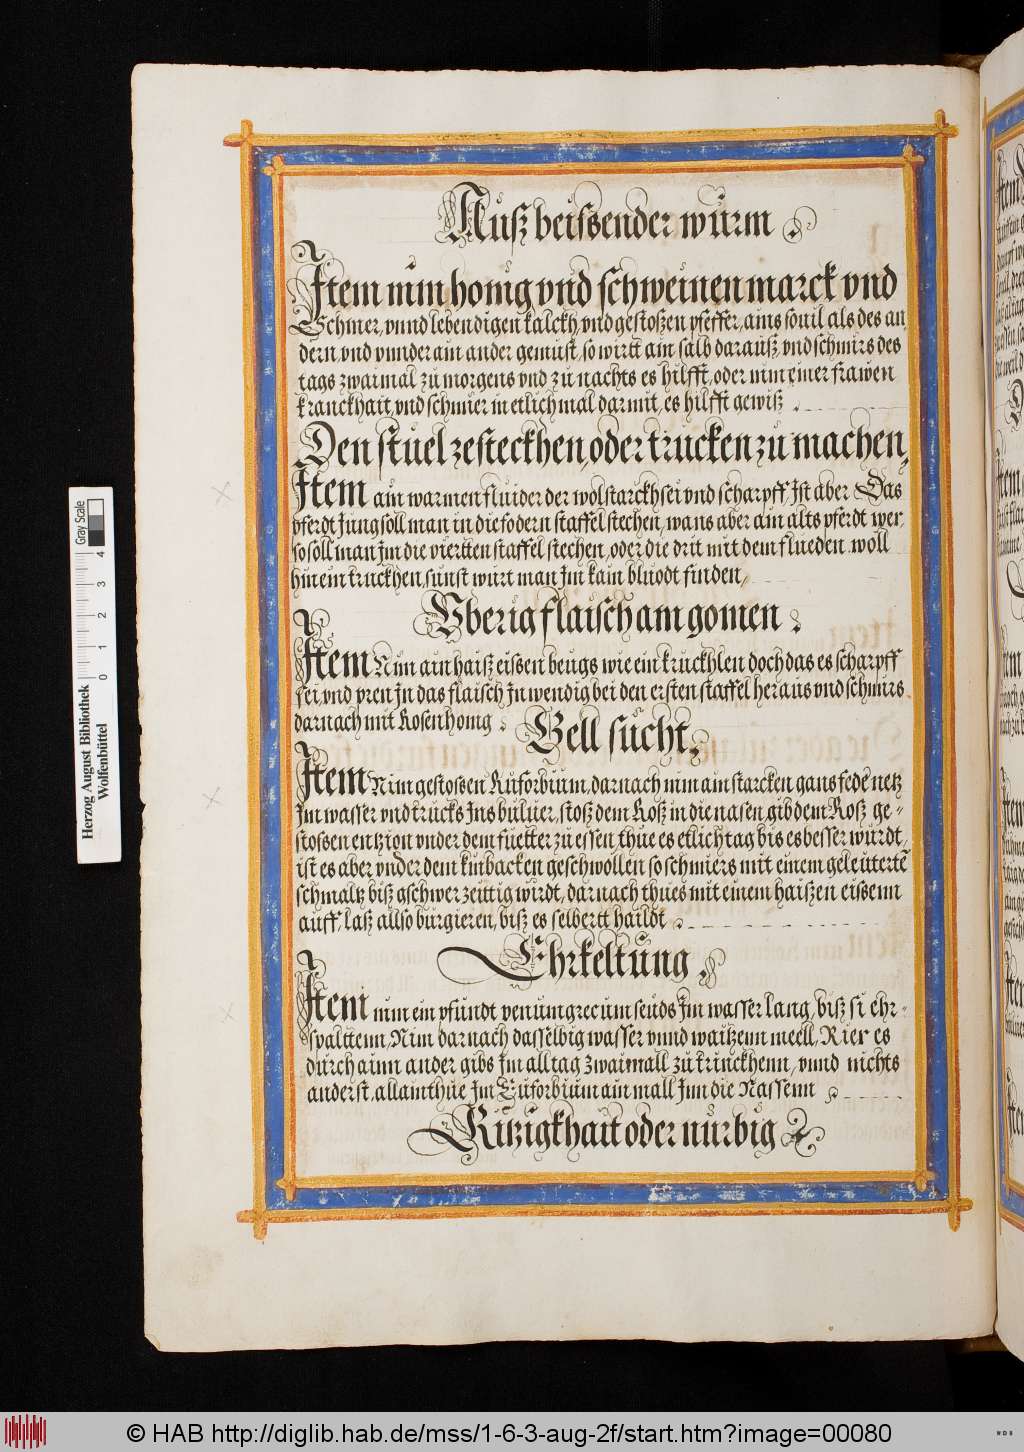 Auß beissender wurm
Item nim honig vnd schweinen marck vnd
Schmer, vnnd lebendigen kalckh, vnd gestoßen pfeffer, ains souil als des an
dern, vnd vnnder ain ander gemust, so wirtt ain salb darauß, vnd schmirs des
tags zwaimal zu morgens vnd zu nachts es hilfft, oder nim einer frawen
kranckhait, vnd schmier in etlich mal darmit, es hilfft gewiß
Den stuel zesteckhen, oder trucken zu machen,
Item ain warmen fluider der wolstarckh sei vnd scharpff Ist aber Das
pferdt Jung soll man in die fodern staffel stechen, wans aber ain alts pferdt wer,
so soll man Jm die viertten staffel stechen, oder die drit mit dem flueden woll
hinein truckhen, sunst wurt man Jm kain bluodt finden,
Vberig flaisch am gomen
Item Nim ain haiß eissen beugs wie ein kruckhlen doch das es scharpff
sei, vnd pren Jn das flaisch Jnwendig bei den ersten staffel heraus vnd schmirs
darnach mit Rosenhonig
Gell sucht,
Item Nim gestossen Euforbium, darnach nim ain starcken gans feder netz
Jm wasser vnd trucks Jns buluer, stoß dem Roß in die nasen, gib dem Roß ge=
stossen entzion vnder dem fuetter zu essen, thue es etlich tag bis es besser wurdt,
ist es aber vnder dem kinbacken geschwollen so schmiers mit einem geleuttertē
schmaltz biß gschwer zeittig wirdt, darnach thues mit einem haißen eissenn
auff, laß allso burgieren, biß es selbertt haildt
Ehrkeltung
Item nim ein pfundt venumgrecum seuds Jm wasser lang, biß si ehr=
spalttenn, Nim darnach dasselbig wasser vnnd waitzenn meell, Rier es
durch ainn ander gibs Jm alltag zwaimall zu trinckhenn, vnnd nichts
anderst, allain thue Jm Euforbium ain mall Jnn die Nassenn
Ritzigkhait oder nurbig
Herzog August Bibliothek
Wolfenbüttel
0 1 2 3 4
Gray Scale
© HAB http://diglib.hab.de/mss/1-6-3-aug-2f/start.htm?image=00080
WDB